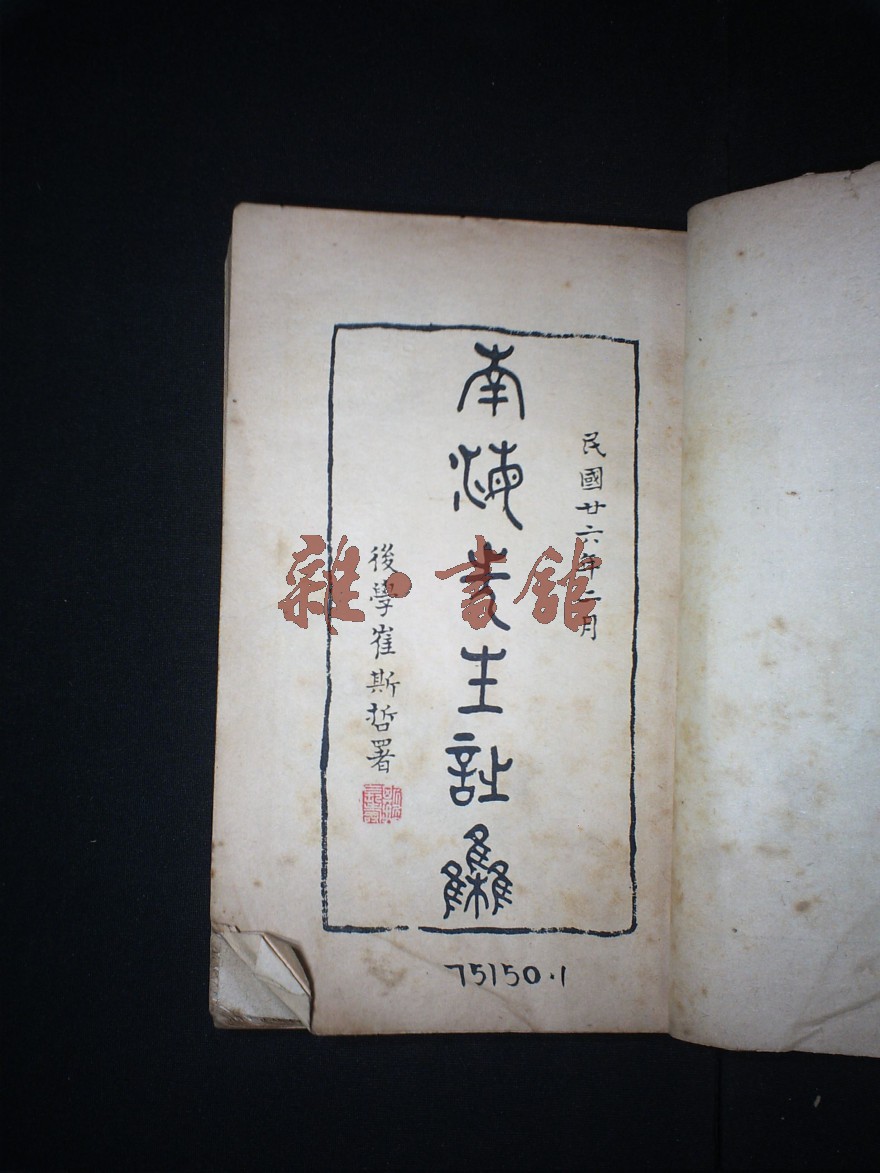 民國廿六年二月
南海先生詩集
後學崔斯哲署
雜·書館
75150.1